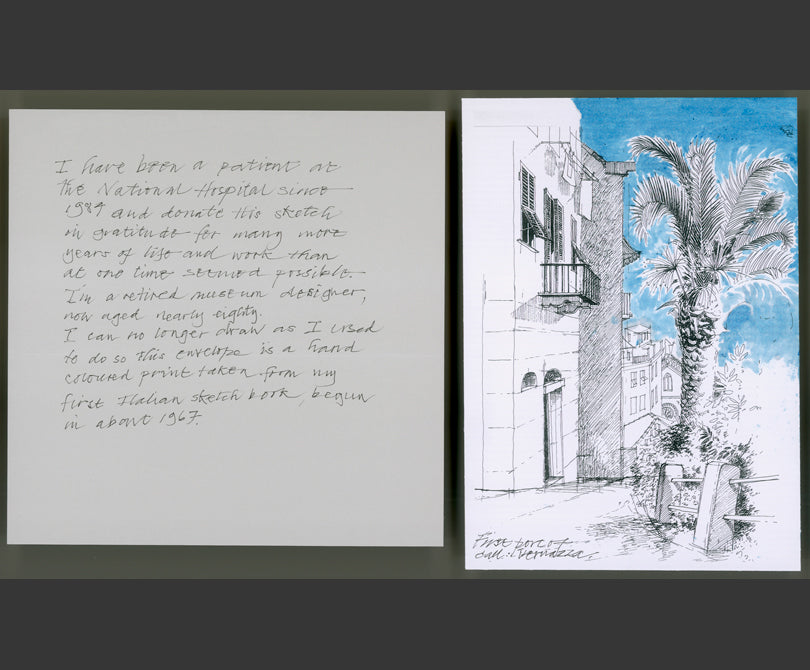 I have been a patient at
the National Hospital since
1989 and donate this sketch
in gratitude for many more
years of life and work than
at one time seemed possible.
I'm a retired museum designer,
now aged nearly eighty.
I can no longer draw as I used
to do so this envelope is a hand
coloured print taken from my
first Italian sketch book, begun
in about 1967.
First port of
call: Vernazza.